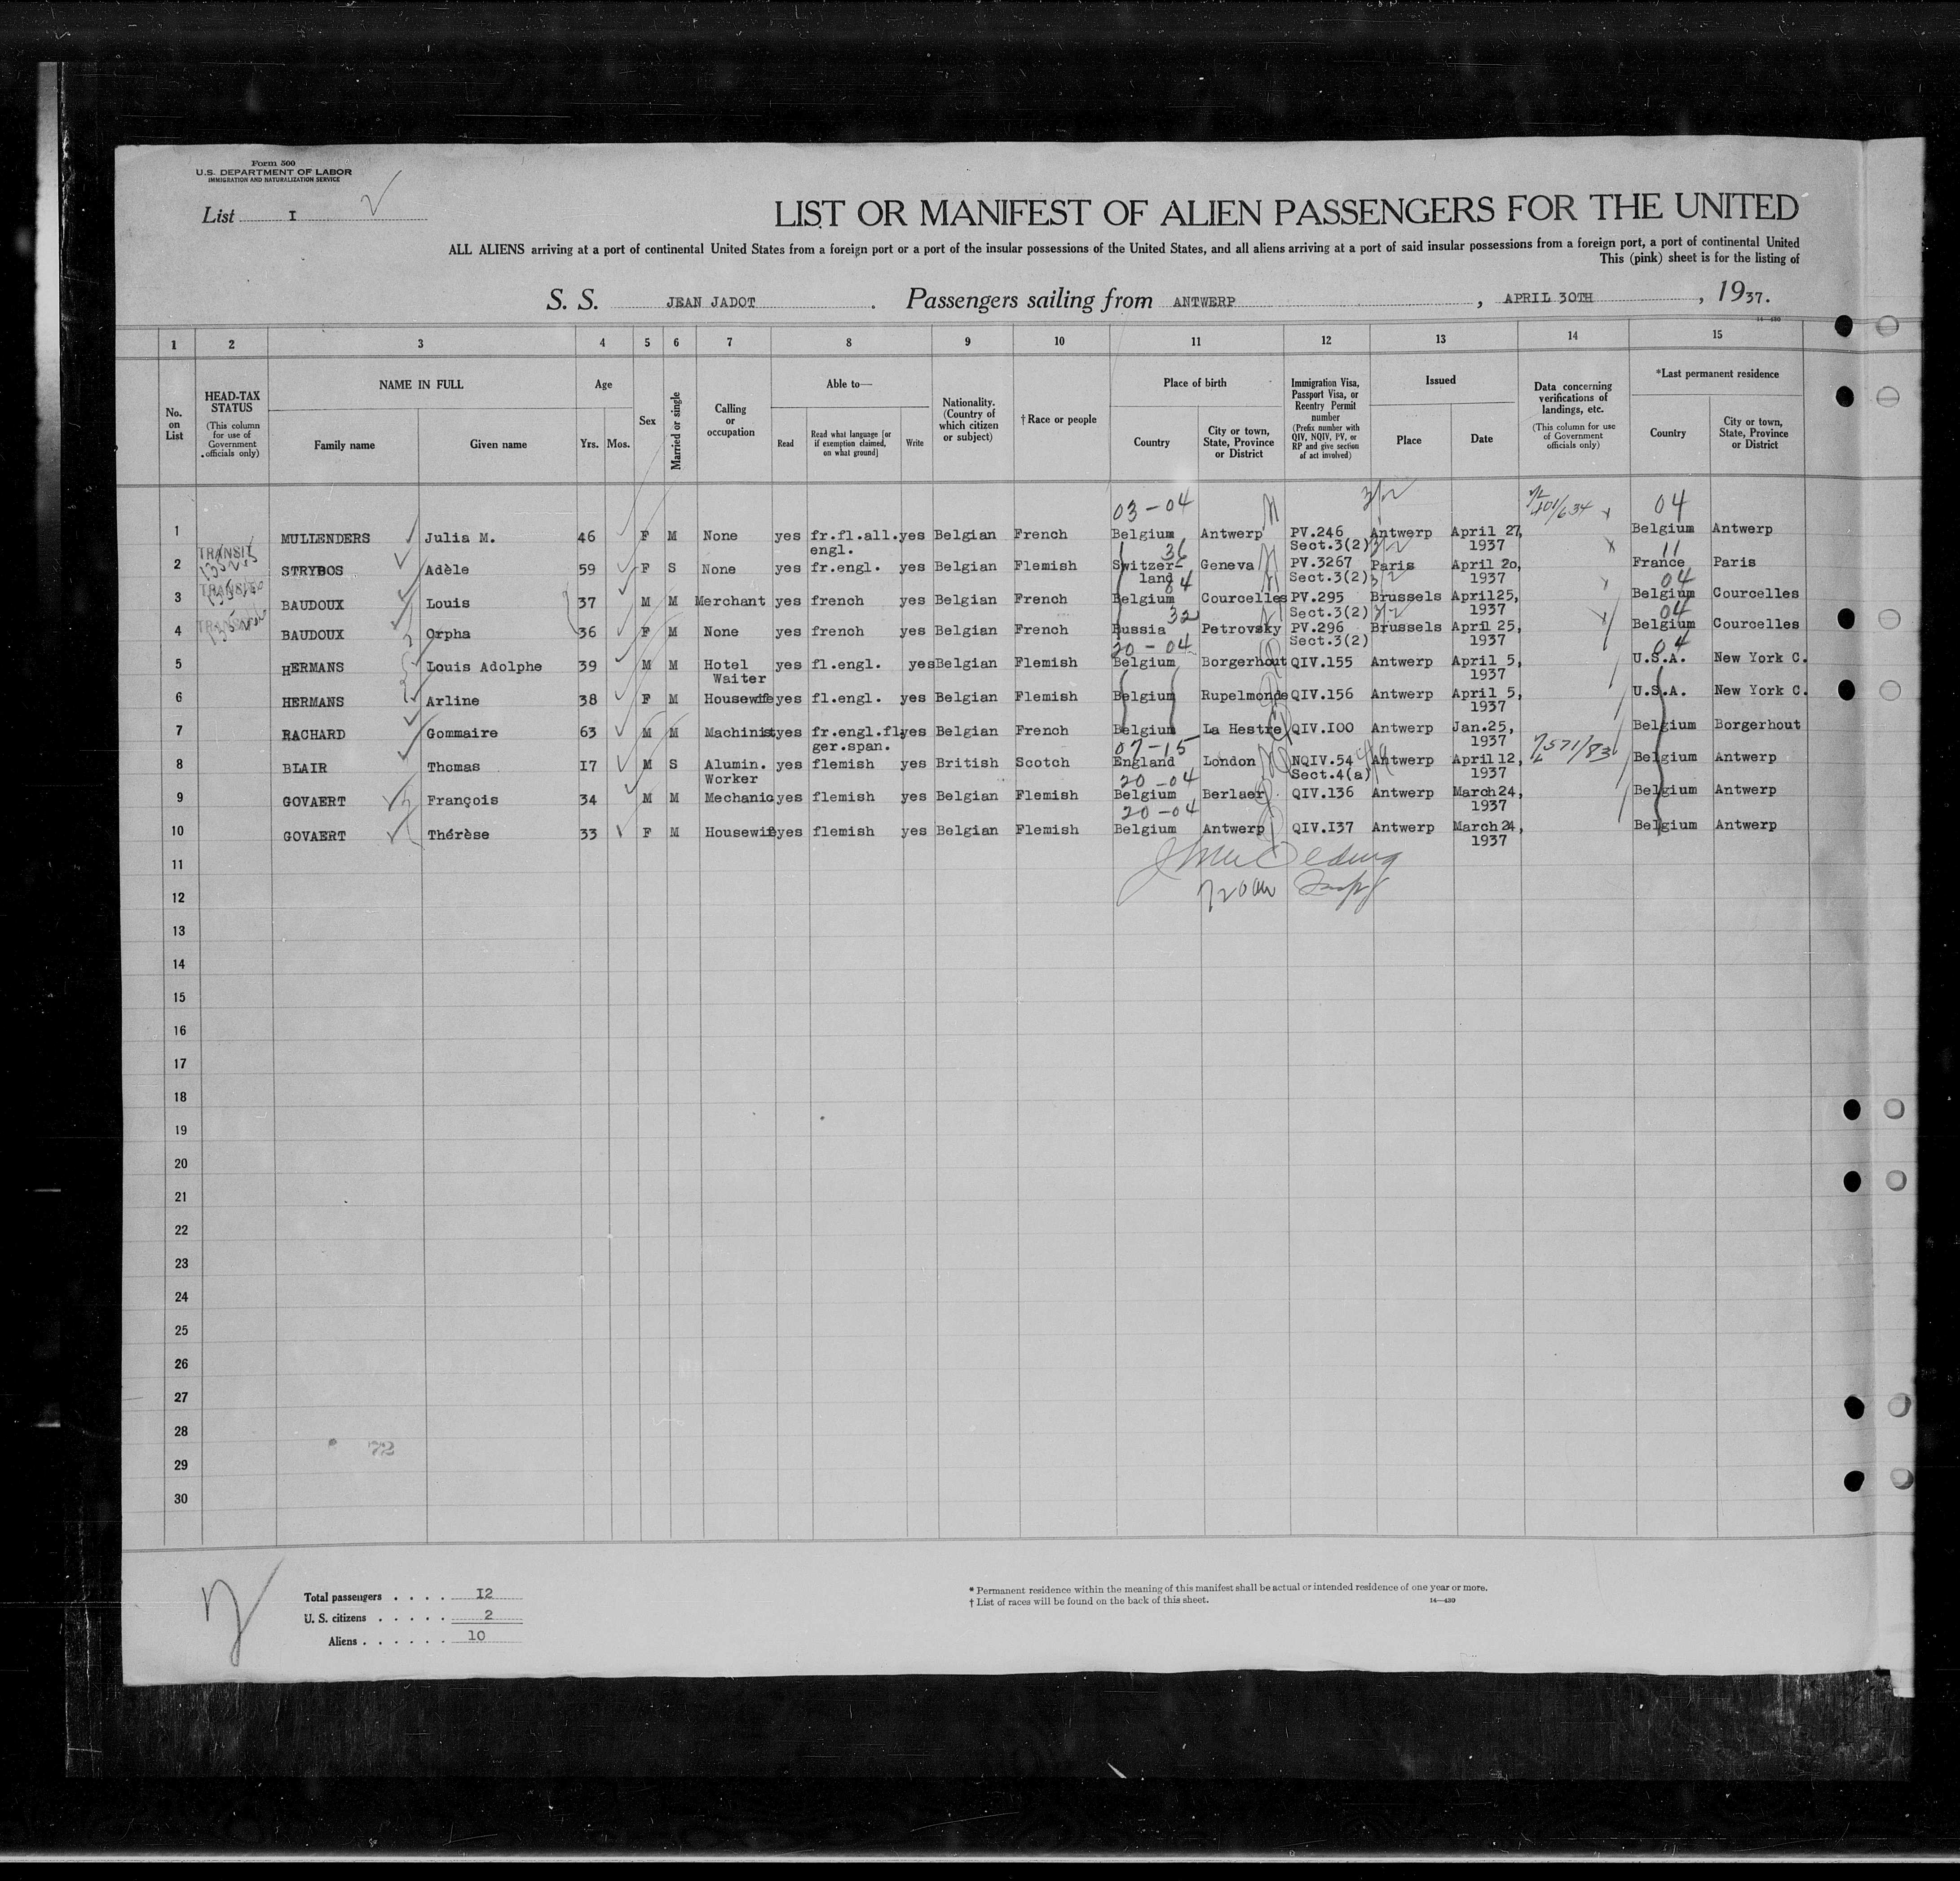 Form 500
U.S. DEPARTMENT OF LABOR
IMMIGRATION AND NATURALIZATION SERVICE
List I
LIST OR MANIFEST OF ALIEN PASSENGERS FOR THE UNITED
ALL ALIENS arriving at a port of continental United States from a foreign port or a port of the insular possessions of the United States, and all aliens arriving at a port of said insular possessions from a foreign port, a port of continental United
This (pink) sheet is for the listing of
S. S. JEAN JADOT. Passengers sailing from ANTWERP, APRIL 30TH, 1937.
14—430
1 2 3 4 5 6 7 8 9 10 11 12 13 14 15
No. on List
HEAD-TAX STATUS (This column for use of Government officials only)
NAME IN FULL Family name Given name
Age Yrs. Mos.
Sex
Married or single
Calling or occupation
Able to— Read Read what language [or if exemption claimed, on what ground] Write
Nationality. (Country of which citizen or subject)
† Race or people
Place of birth Country City or town, State, Province or District
Immigration Visa, Passport Visa, or Reentry Permit number (Prefix number with QIV, NQIV, PV, or RP and give section of act involved)
Issued Place Date
Data concerning verifications of landings, etc. (This column for use of Government officials only)
*Last permanent residence Country City or town, State, Province or District
03-04 3/2 04
1 MULLENDERS Julia M. 46 F M None yes fr.fl.all. yes Belgian French Belgium Antwerp PV.246 Antwerp April 27, Belgium Antwerp
engl. Sect.3(2) 3/2 1937
TRANSIT 36 11
2 STRYBOS Adèle 59 F S None yes fr.engl. yes Belgian Flemish Switzer- Geneva PV.3267 Paris April 20, France Paris
land Sect.3(2) 3/2 1937
TRANSIT 04 04
3 BAUDOUX Louis 37 M M Merchant yes french yes Belgian French Belgium Courcelles PV.295 Brussels April25, Belgium Courcelles
Sect.3(2) 3/2 1937
TRANSIT 32 04
4 BAUDOUX Orpha 36 F M None yes french yes Belgian French Russia Petrovsky PV.296 Brussels April 25, Belgium Courcelles
Sect.3(2) 1937
20-04 04
5 HERMANS Louis Adolphe 39 M M Hotel yes fl.engl. yes Belgian Flemish Belgium Borgerhout QIV.155 Antwerp April 5, U.S.A. New York C.
Waiter 1937
6 HERMANS Arline 38 F M Housewife yes fl.engl. yes Belgian Flemish Belgium Rupelmonde QIV.156 Antwerp April 5, U.S.A. New York C.
1937
7 RACHARD Gommaire 63 M M Machinist yes fr.engl.fl. yes Belgian French Belgium La Hestre QIV.I00 Antwerp Jan.25, Belgium Borgerhout
ger.span. 1937
07-15
8 BLAIR Thomas I7 M S Alumin. yes flemish yes British Scotch England London NQIV.54 Antwerp April 12, Belgium Antwerp
Worker Sect.4(a) 1937
20-04
9 GOVAERT François 34 M M Mechanic yes flemish yes Belgian Flemish Belgium Berlaer QIV.136 Antwerp March 24, Belgium Antwerp
1937
20-04
10 GOVAERT Thérèse 33 F M Housewife yes flemish yes Belgian Flemish Belgium Antwerp QIV.I37 Antwerp March 24, Belgium Antwerp
1937
11
12
13
14
15
16
17
18
19
20
21
22
23
24
25
26
27
28
72
29
30
Total passengers . . . . I2
U. S. citizens . . . . . 2
Aliens . . . . . . 10
* Permanent residence within the meaning of this manifest shall be actual or intended residence of one year or more.
† List of races will be found on the back of this sheet.
14—430